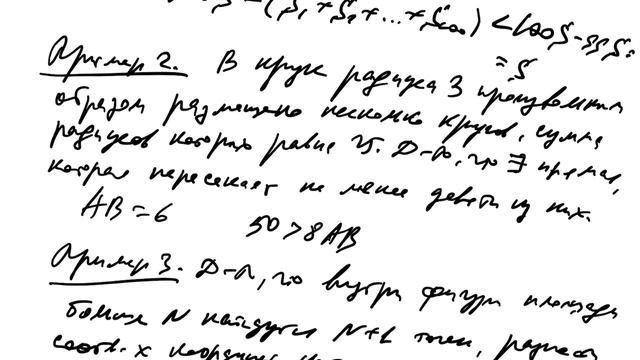 – (S₁ + S₂ + ... + S₁₀₀) < 100S – 99S =
= S
Пример 2. В круге радиуса 3 произвольным
образом размещено несколько кругов, сумма
радиусов которых равна 25. Д-ть, что ∃ прямая,
которая пересекает не менее девяти из них.
AB = 6 50 > 8AB
Пример 3. Д-ть, что внутри фигуры площади
больше N найдутся N+1 точек, разность
соотв. x координат